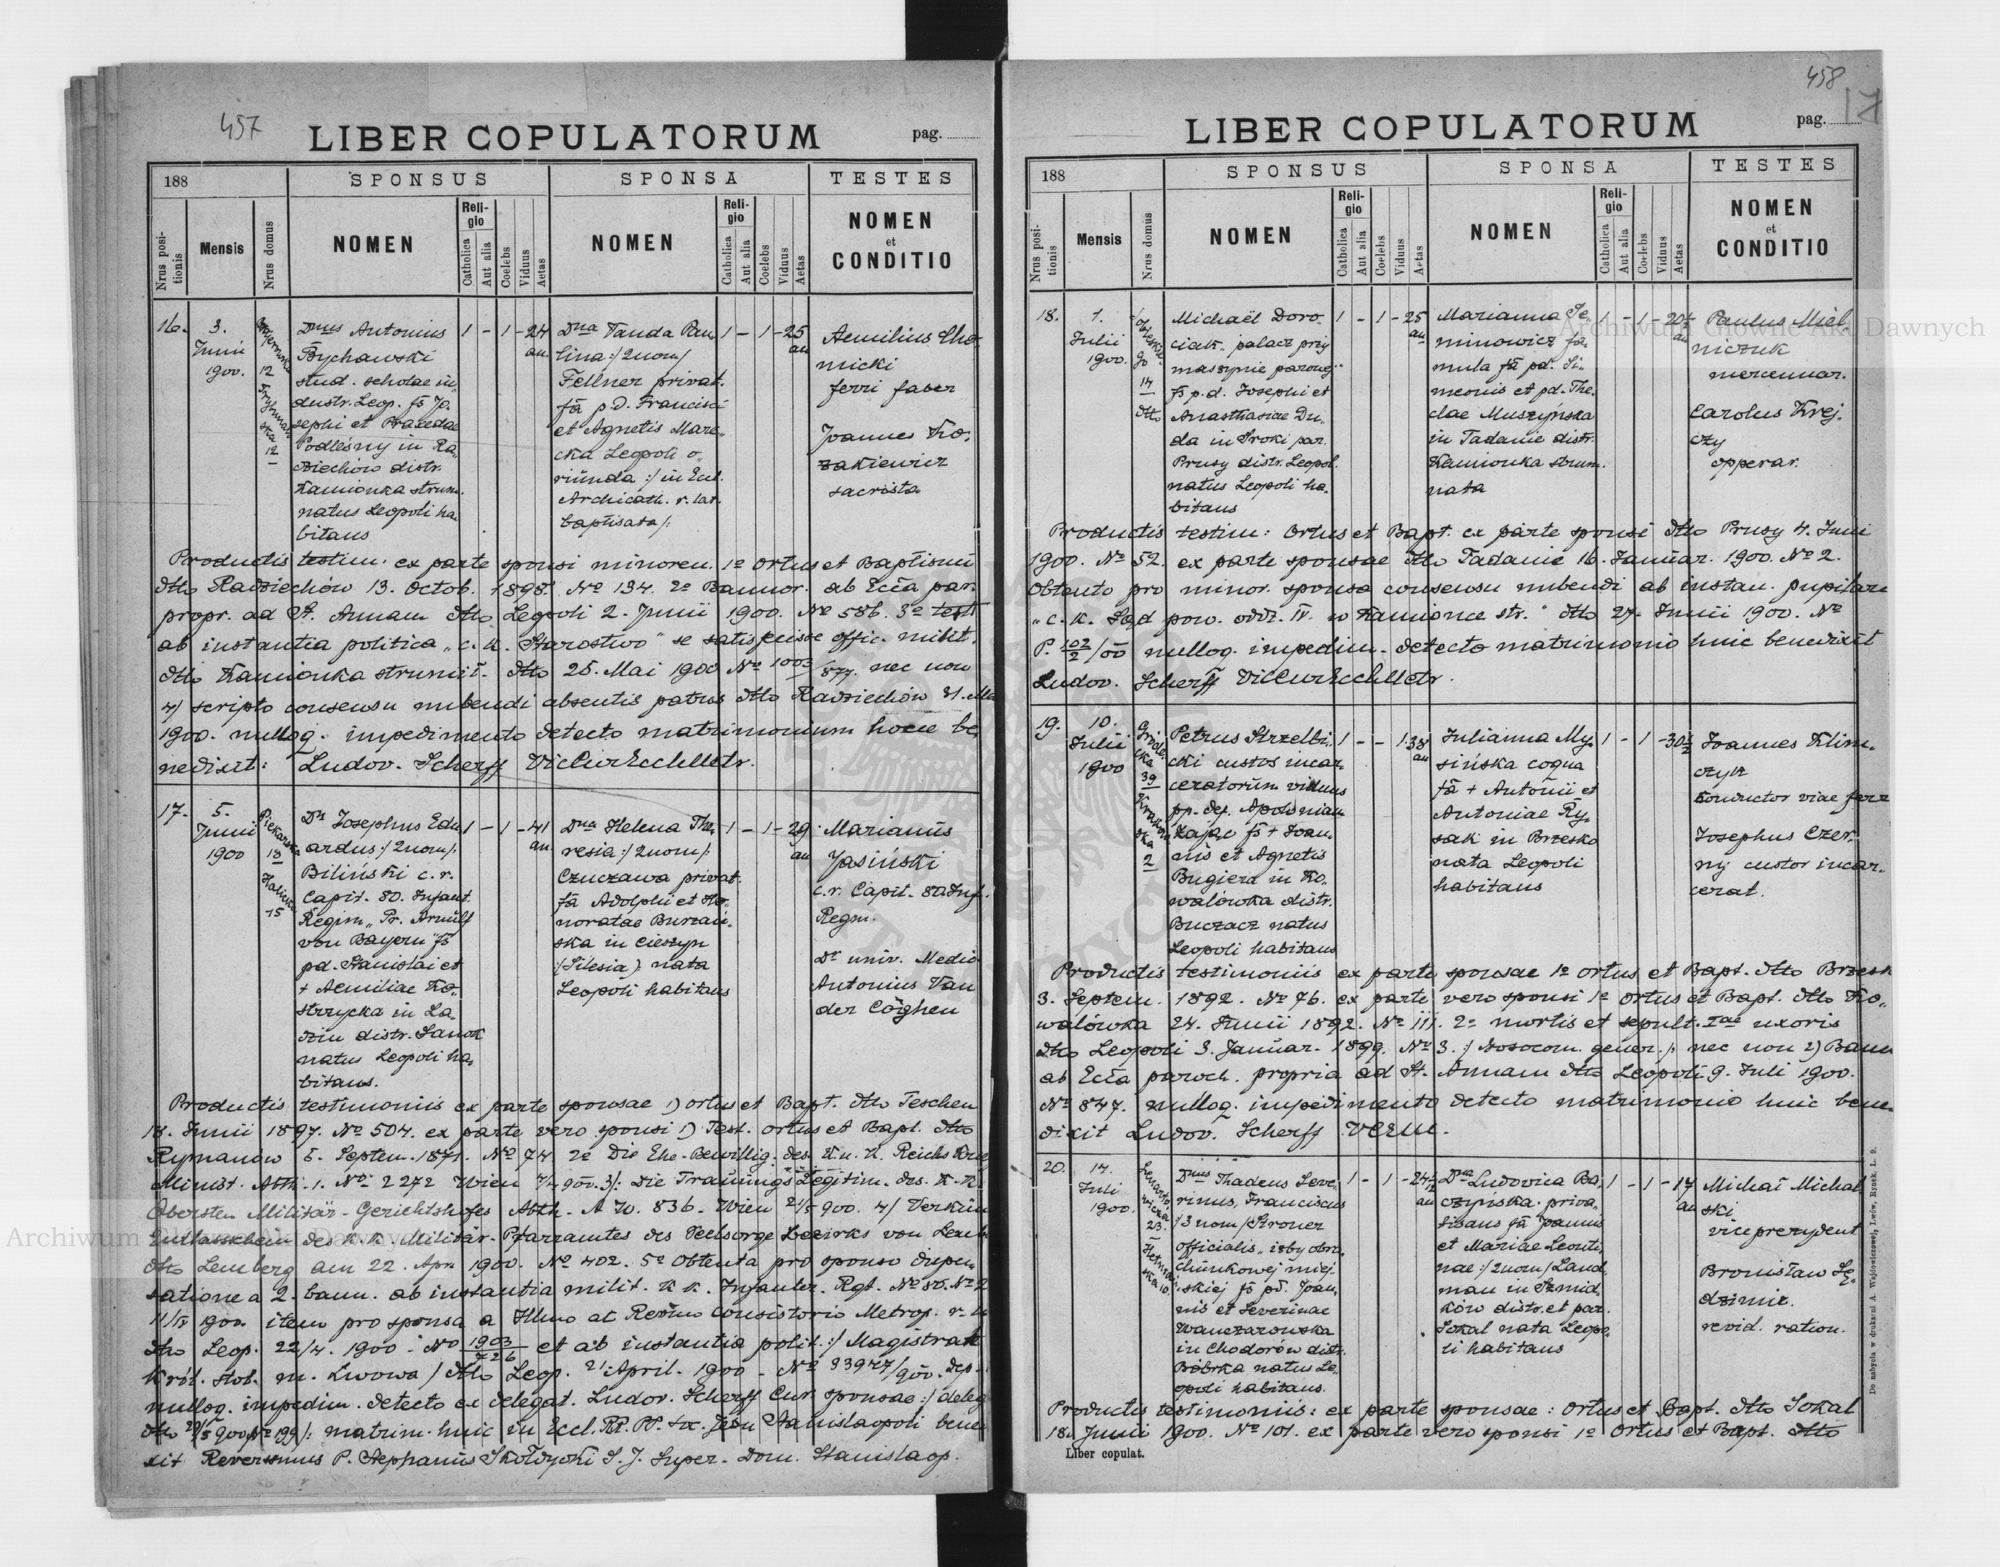 457
LIBER COPULATORUM
pag.
188
SPONSUS
SPONSA
TESTES
Nrus positionis
Mensis
Nrus domus
NOMEN
Religio
Catholica
Aut alia
Coelebs
Viduus
Aetas
NOMEN
Religio
Catholica
Aut alia
Coelebs
Viduus
Aetas
NOMEN
et
CONDITIO
16.
3.
Junii
1900.
12
12
Dnus Antonius
Bychawski
stud. scholae in
dustr. Leop. fs Jo
sephi et Praxedae
Podleśny in Ra
dziechów distr.
Kamionka strum.
natus Leopoli ha
bitans
1 - 1 - 24
an.
Dna Vanda Pau
lina :/2nom/
Fellner privat.
fa p.d. Francisci
et Agnetis Mare
cka Leopoli o
riunda :/ in Eccl.
Archicath. r. lat.
baptisata/:
1 - 1 - 25
an
Aemilius Cho
micki
ferri faber
Joannes Ko
zakiewicz
sacrista
Productis testim. ex parte sponsi minoren. 1o ortus et Baptismi
dtto Radziechów 13. Octob. 1898. No 134. 2o Bannor. ab Eccla par.
propr. ad St. Annam dtto Leopoli 2. Junii 1900. No 586. 3o test
ab instantia politica „c. k. Starostwo" se satisfecisse offic. milit.
dtto Kamionka strumił. dtto 25. Mai 1900 No 1003/877. nec non
4/ scripto consensu nubendi absentis patris dtto Radziechów 31. Mai
1900. nulloq. impedimento detecto matrimonium hocce be
nedixit: Ludov. Scherff VicCurEcclMetr.
17.
5.
Junii
1900
Piekarska
13
15
Ds Josephus Edu
ardus :/2nom/:
Biliński c. r.
Capit. 80. Infant.
Regim „Pr. Arnulf
von Bayern" fs
pd. Stanislai et
+ Aemiliae Ko
strzycka in La
dzin distr. Sanok
natus Leopoli ha
bitans.
1 - 1 - 41
an.
Dna Helena The
resia :/2nom/:
Czuczawa privat.
fa Adolphi et Ho
noratae Burzań
ska in Cieszyn
:/Silesia/: nata
Leopoli habitans
1 - 1 - 29
an
Marianus
Jasiński
c. r. Capit. 80 Inf.
Regm.
Dr univ. Medic
Antonius Van
der Cöghen
Productis testimoniis ex parte sponsae 1) ortus et Bapt. dtto Teschen
18. Junii 1897. No 504. ex parte vero sponsi 1) Test. ortus et Bapt. dtto
Rymanów 5. Septem. 1871. No 74 2o Die Ehe-Bewillig. des K. u. K. Reichs Krie
Minist. Abth. 1. No 2272 Wien 900. 3/: Die Trauungs Legitim. des. K. K.
Obersten Militär-Gerichtshofes Abth. A W. 836. Wien 21/5 900. 4/ Verkün
Entlasschein des K. K. Militär-Pfarramtes des Seelsorge Bezirks von Lemb
dtto Lemberg am 22. Apr. 1900. No 402. 5o Obtenta pro sponso dispen
satione a 2. bann. ab instantia milit. K. K. Infanter. Rgt. No 80. No 2
1900. item pro sponsa a Illmo ac Revmo Consistorio Metrop. r. l.
dtto Leop. 22/4. 1900 - No 1903/726 et ab instantia polit. :/ Magistrat
Król. stoł. m. Lwowa / dtto Leop. 21 April. 1900 - No 33947/900. dep.
nulloq. impedim. detecto ex delegat. Ludov. Scherff Cur. sponsae :/ deleg
dtto 29/5 900 No 199/: matrim. huic in Eccl. RR. PP. Soc. Jesu Stanislaopoli bene
xit Reverssmus P. Stephanus Skołdycki S. J. Super. Dom. Stanislaop.
458
17
LIBER COPULATORUM
pag.
188
SPONSUS
SPONSA
TESTES
Nrus positionis
Mensis
Nrus domus
NOMEN
Religio
Catholica
Aut alia
Coelebs
Viduus
Aetas
NOMEN
Religio
Catholica
Aut alia
Coelebs
Viduus
Aetas
NOMEN
et
CONDITIO
18.
1.
Julii
1900.
14
dtto
Michaël Doro
ciak. palacz przy
maszynie parowej
fs p.d. Josephi et
Anasthasiae Du
da in Sroki par.
Prusy distr. Leopol.
natus Leopoli ha
bitans
1 - 1 - 25
an
Marianna Se
minowicz fa
mula fa pd. Si
meonis et pd. The
clae Muszyńska
in Tadanie distr.
Kamionka strum.
nata
1 - 1 - 20½
an
Paulus Miel
niczuk
mercennar.
Carolus Krej
czy
opperar.
Productis testim: Ortus et Bapt. ex parte sponsi dtto Prusy 4. Junii
1900. No 52. ex parte sponsae dtto Tadanie 16. Januar. 1900. No 2.
Obtento pro minor. sponsa consensu nubendi ab instan. pupilare
„c. k. Sąd pow. oddz. IV. w Kamionce str." dtto 27. Junii 1900. No
P. 102/2/00 nulloq. impedim. detecto matrimonio huic benedixit
Ludov. Scherff VicCurEcclMetr.
19.
10.
Julii
1900
39
2
Petrus Strzelbi
cki custos incar
ceratorum viduus
pp. def. Apolloniam
Zając fs + Joan
nis et Agnetis
Bugiera in Ko
walówka distr.
Buczacz natus
Leopoli habitans
1 - - 1 38
an
Julianna My
sińska coqua
fa + Antonii et
Antoniae Ry
sak in Brzesko
nata Leopoli
habitans
1 - 1 - 30½
an
Joannes Klim
czyk
conductor viae ferr
Josephus Czer
ny custor incar
cerat.
Productis testimoniis ex parte sponsae 1o ortus et Bapt. dtto Brzesk
3. Septem. 1892. No 76. ex parte vero sponsi 1o ortus et Bapt. dtto Ko
walówka 24. Junii 1892. No 111. 2o mortis et sepult. Iae uxoris
dtto Leopoli 3. Januar. 1899. No 3. :/ Nosocom. gener./: nec non 2) Bann
ab Eccla paroch. propria ad St. Annam dtto Leopoli 9. Juli 1900.
No 847. nulloq. impedimento detecto matrimonio huic bene
dixit Ludov. Scherff VCEM.
20.
14.
Juli
1900.
23.
10.
Dnus Thadeus Seve
rinus, Franciscus
/3 nom/ Stroner
officialis „izby obra
chunkowej miej
skiej fs pd. Joan
nis et Severinae
Wanczarowska
in Chodorów distr.
Bóbrka natus Le
opoli habitans.
1 - 1 - 24
an
Dna Ludovica Ba
czyńska priva
tisans fa Joannis
et Mariae Leonti
nae :/2nom/ Land
man in Szmid
ków distr. et par.
Sokal nata Leopo
li habitans
1 - 1 - 17
an
Michał Michal
ski
viceprezydent
Bronisław Sę
dzimir.
revid. ration.
Productis testimoniis: ex parte sponsae: Ortus et Bapt. dtto Sokal
18. Junii 1900. No 101. ex parte vero sponsi 1o Ortus et Bapt. dtto
Liber copulat.
Do nabycia w drukarni A. Wajdowiczowej, Lwów, Rynek, L. 9.
Archiwum Główne Akt Dawnych
Archiwum Główne Akt Dawnych